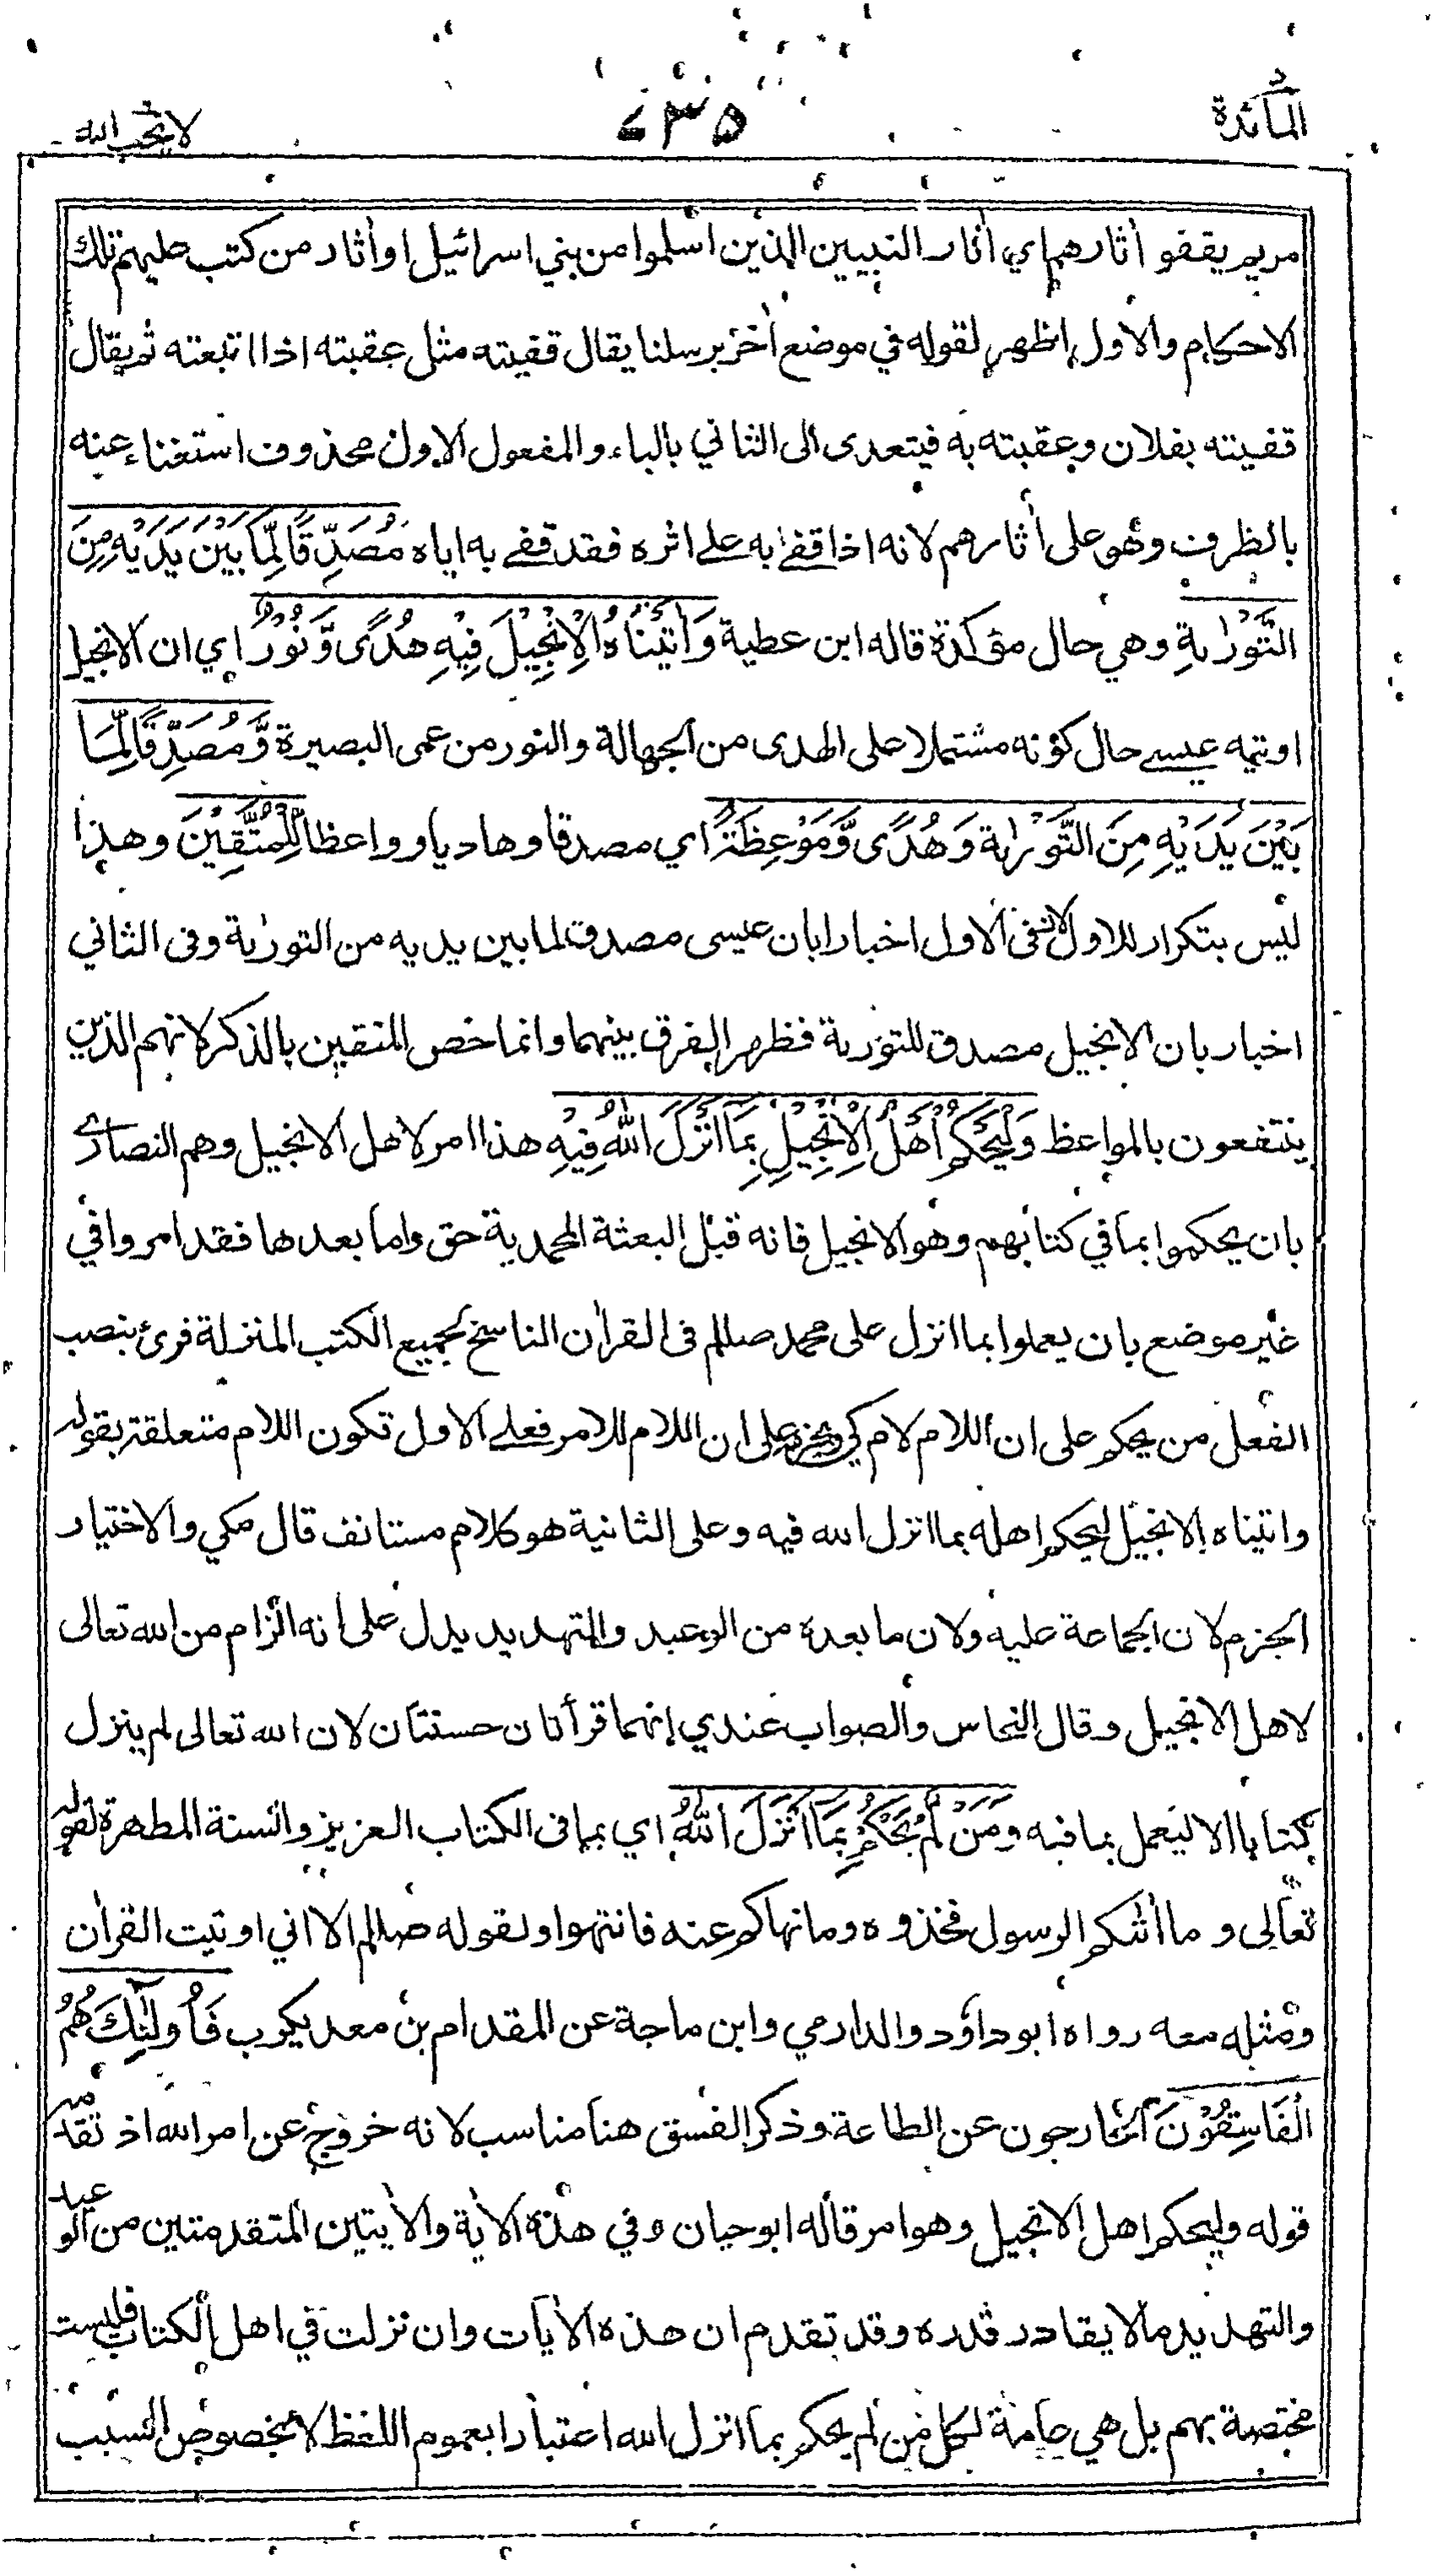 المآئدة
٤٣٥
لا يحب الله
مريم يقفو أثارهم اي أثار النبيين الذين اسلموا من بني اسرائيل او أثار من كتب عليهم تلك
الاحكام والاول اظهر لقوله في موضع أخر برسلنا يقال قفيته مثل عقبته اذا اتبعته ثم يقال
قفيته بفلان وعقبته به فيتعدى الى الثاني بالباء والمفعول الاول محذوف استغناء عنه
بالظرف وهو على أثارهم لانه اذا قفى به على اثره فقد قفى به اياه مُصَدِّقًا لِّمَا بَيْنَ يَدَيْهِ مِنَ
التَّوْرٰىةِ وهي حال مؤكدة قاله ابن عطية وَأٰتَيْنَاهُ الْإِنْجِيْلَ فِيْهِ هُدًى وَّنُوْرٌ اي ان الانجيل
اوتيه عيسى حال كونه مشتملا على الهدى من الجهالة والنور من عمى البصيرة وَّمُصَدِّقًا لِّمَا
بَيْنَ يَدَيْهِ مِنَ التَّوْرٰىةِ وَهُدًى وَّمَوْعِظَةً اي مصدقا وهاديا وواعظا لِّلْمُتَّقِيْنَ وهذا
ليس بتكرار للاول لان في الاول اخبارا بان عيسى مصدق لما بين يديه من التورٰىة وفي الثاني
اخبار بان الانجيل مصدق للتورىة فظهر الفرق بينهما وانما خص المتقين بالذكر لانهم الذين
ينتفعون بالمواعظ وَلْيَحْكُمْ أَهْلُ الْإِنْجِيْلِ بِمَآ أَنْزَلَ اللّٰهُ فِيْهِ هذا امر لاهل الانجيل وهم النصارى
بان يحكموا بما في كتابهم وهو الانجيل فانه قبل البعثة المحمدية حق واما بعدها فقد امروا في
غير موضع بان يعملوا بما انزل على محمد صللم في القرأن الناسخ لجميع الكتب المنزلة قرئ بنصب
الفعل من يحكم على ان اللام لام كي وبجزمه على ان اللام للامر فعلى الاول تكون اللام متعلقة بقوله
واتيناه الانجيل ليحكم اهله بما انزل الله فيه وعلى الثانية هو كلام مستانف قال مكي والاختيار
الجزم لان الجماعة عليه ولان ما بعده من الوعيد والتهديد يدل على انه الزام من الله تعالى
لاهل الانجيل وقال النحاس والصواب عندي انهما قرأتان حسنتان لان الله تعالى لم ينزل
كتابا الا ليعمل بما فيه وَمَنْ لَّمْ يَحْكُمْ بِمَآ أَنْزَلَ اللّٰهُ اي بما في الكتاب العزيز والسنة المطهرة لقوله
تعالى وما أتٰكم الرسول فخذوه وما نهاكم عنه فانتهوا ولقوله صللم الا اني اوتيت القرأن
ومثله معه رواه ابو داؤد والدارمي وابن ماجة عن المقدام بن معديكرب فَأُولٰٓئِكَ هُمُ
الْفَاسِقُوْنَ الخارجون عن الطاعة وذكر الفسق هنا مناسب لانه خروج عن امر الله اذ تقدم
قوله وليحكم اهل الانجيل وهو امر قاله ابو حيان وفي هذه الأية والأيتين المتقدمتين من الوعيد
والتهديد ما لا يقادر قدره وقد تقدم ان هذه الأيات وان نزلت في اهل الكتاب فليست
مختصة بهم بل هي عامة لكل من لم يحكم بما انزل الله اعتبارا بعموم اللفظ لا بخصوص السبب